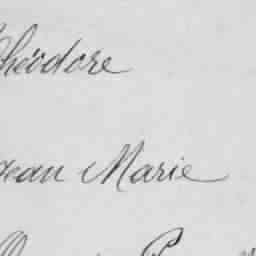 Théodore
Jean Marie